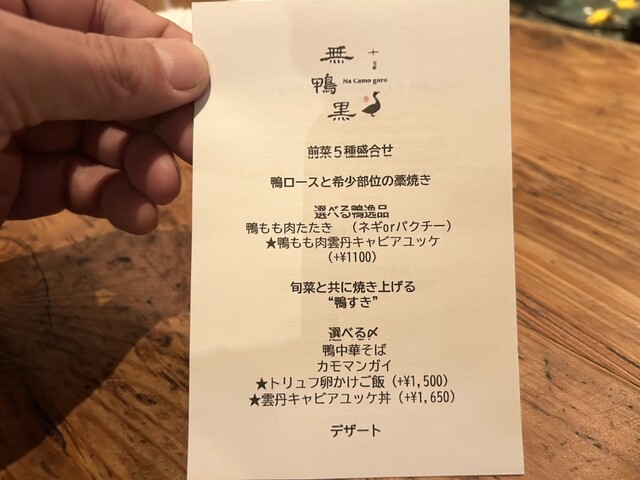 無鴨黒
Na Camo guro
前菜5種盛合せ
鴨ロースと希少部位の藁焼き
選べる鴨逸品
鴨もも肉たたき （ネギorパクチー）
★鴨もも肉雲丹キャビアユッケ
（+¥1100）
旬菜と共に焼き上げる
“鴨すき”
選べる〆
鴨中華そば
カモマンガイ
★トリュフ卵かけご飯（+¥1,500）
★雲丹キャビアユッケ丼（+¥1,650）
デザート